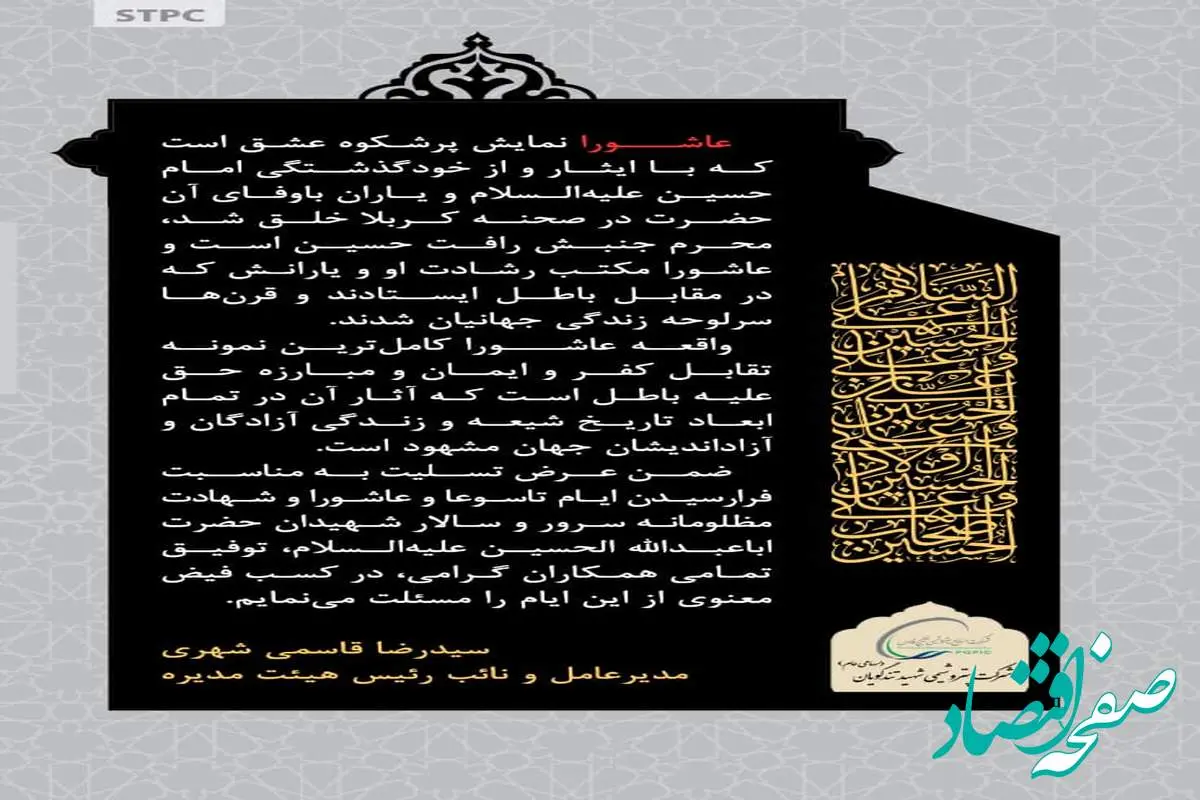 STPC
عاشورا نمایش پرشکوه عشق است
که با ایثار و از خودگذشتگی امام
حسین علیه‌السلام و یاران باوفای آن
حضرت در صحنه کربلا خلق شد،
محرم جنبش رافت حسین است و
عاشورا مکتب رشادت او و یارانش که
در مقابل باطل ایستادند و قرن‌ها
سرلوحه زندگی جهانیان شدند.
واقعه عاشورا کامل‌ترین نمونه
تقابل کفر و ایمان و مبارزه حق
علیه باطل است که آثار آن در تمام
ابعاد تاریخ شیعه و زندگی آزادگان و
آزاداندیشان جهان مشهود است.
ضمن عرض تسلیت به مناسبت
فرارسیدن ایام تاسوعا و عاشورا و شهادت
مظلومانه سرور و سالار شهیدان حضرت
اباعبدالله الحسین علیه‌السلام، توفیق
تمامی همکاران گرامی، در کسب فیض
معنوی از این ایام را مسئلت می‌نمایم.
سیدرضا قاسمی شهری
مدیرعامل و نائب رئیس هیئت مدیره
السلام علی
الحسین
و علی
علی بن
الحسین
و علی
اولاد
الحسین
و علی
اصحاب
الحسین
PGPIC
(سهامی عام)
شرکت پتروشیمی شهید تندگویان
صفحه اقتصاد